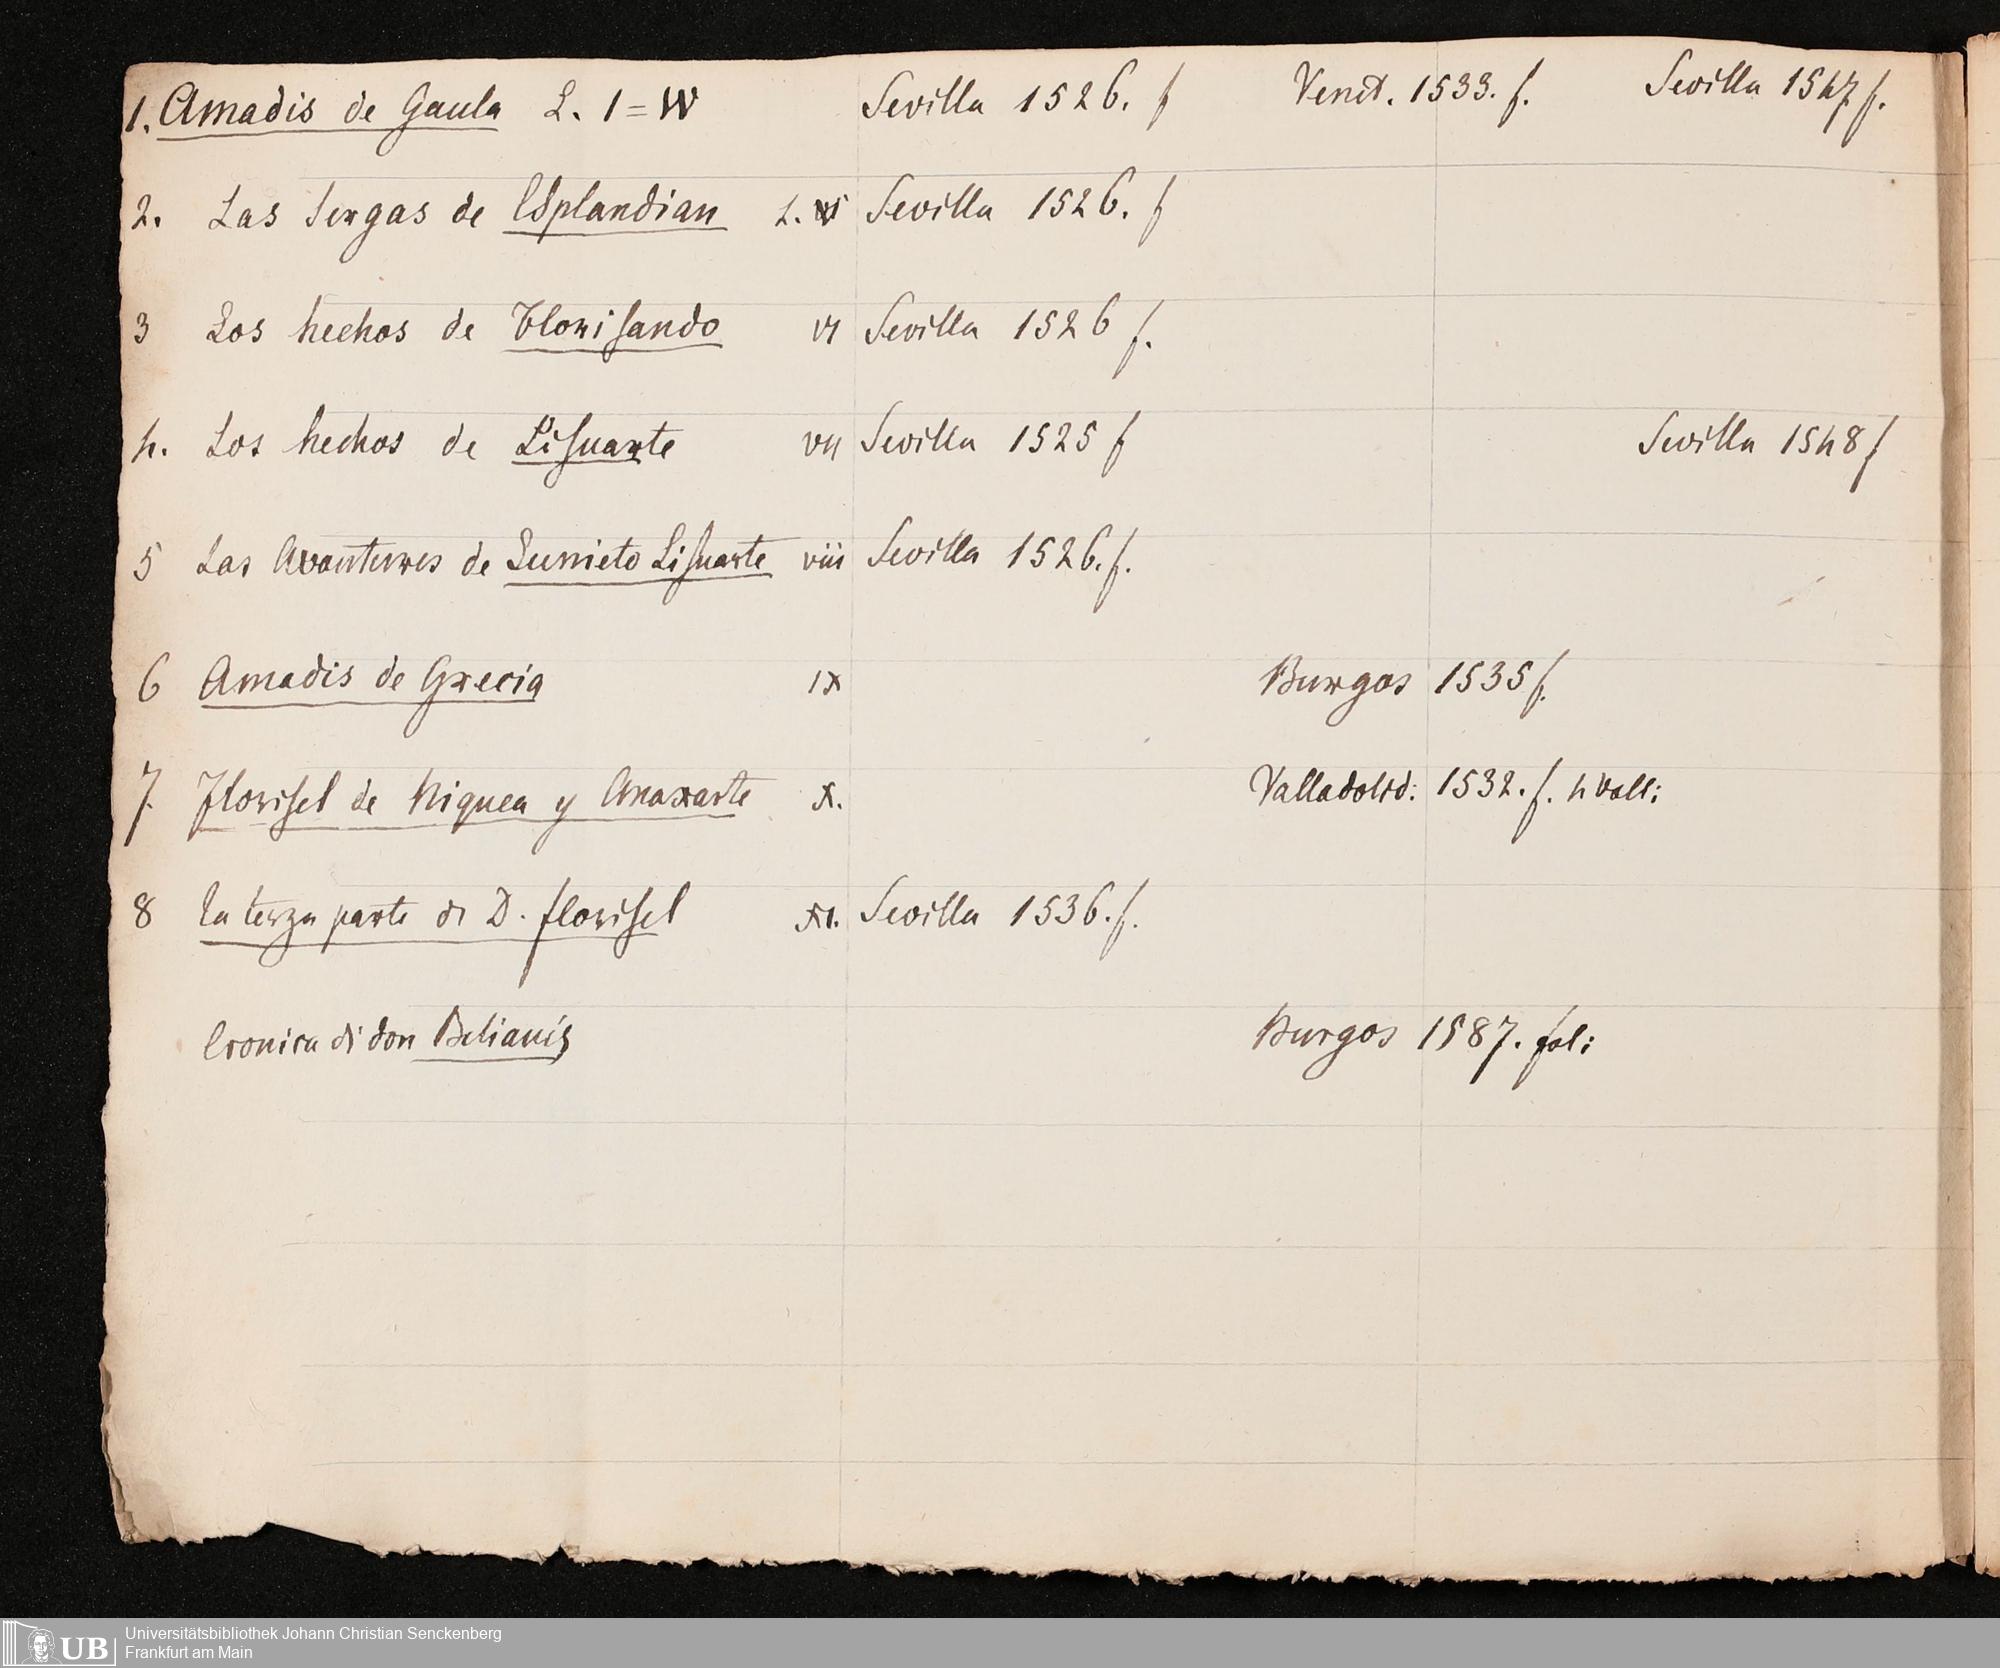 1. Amadis de Gaula L. 1=IV Sevilla 1526. f Venet. 1533. f. Sevilla 1547 f.
2. Las Sergas de Esplandian L. V Sevilla 1526. f
3 Los hechos de Florisando VI Sevilla 1526 f.
4. Los hechos de Lisuarte VII Sevilla 1525 f Sevilla 1548 f
5 Las Avanturres de Lunieto Lisuarte viii Sevilla 1526. f.
6 Amadis de Grecia IX Burgos 1535 f.
7. Florisel de Niquea y Anaxarte X. Valladolid: 1532. f. 4 Voll:
8 La terza parte di D. florisel XI. Sevilla 1536. f.
Cronica di don Belianis Burgos 1587. fol:
UB Universitätsbibliothek Johann Christian Senckenberg
Frankfurt am Main